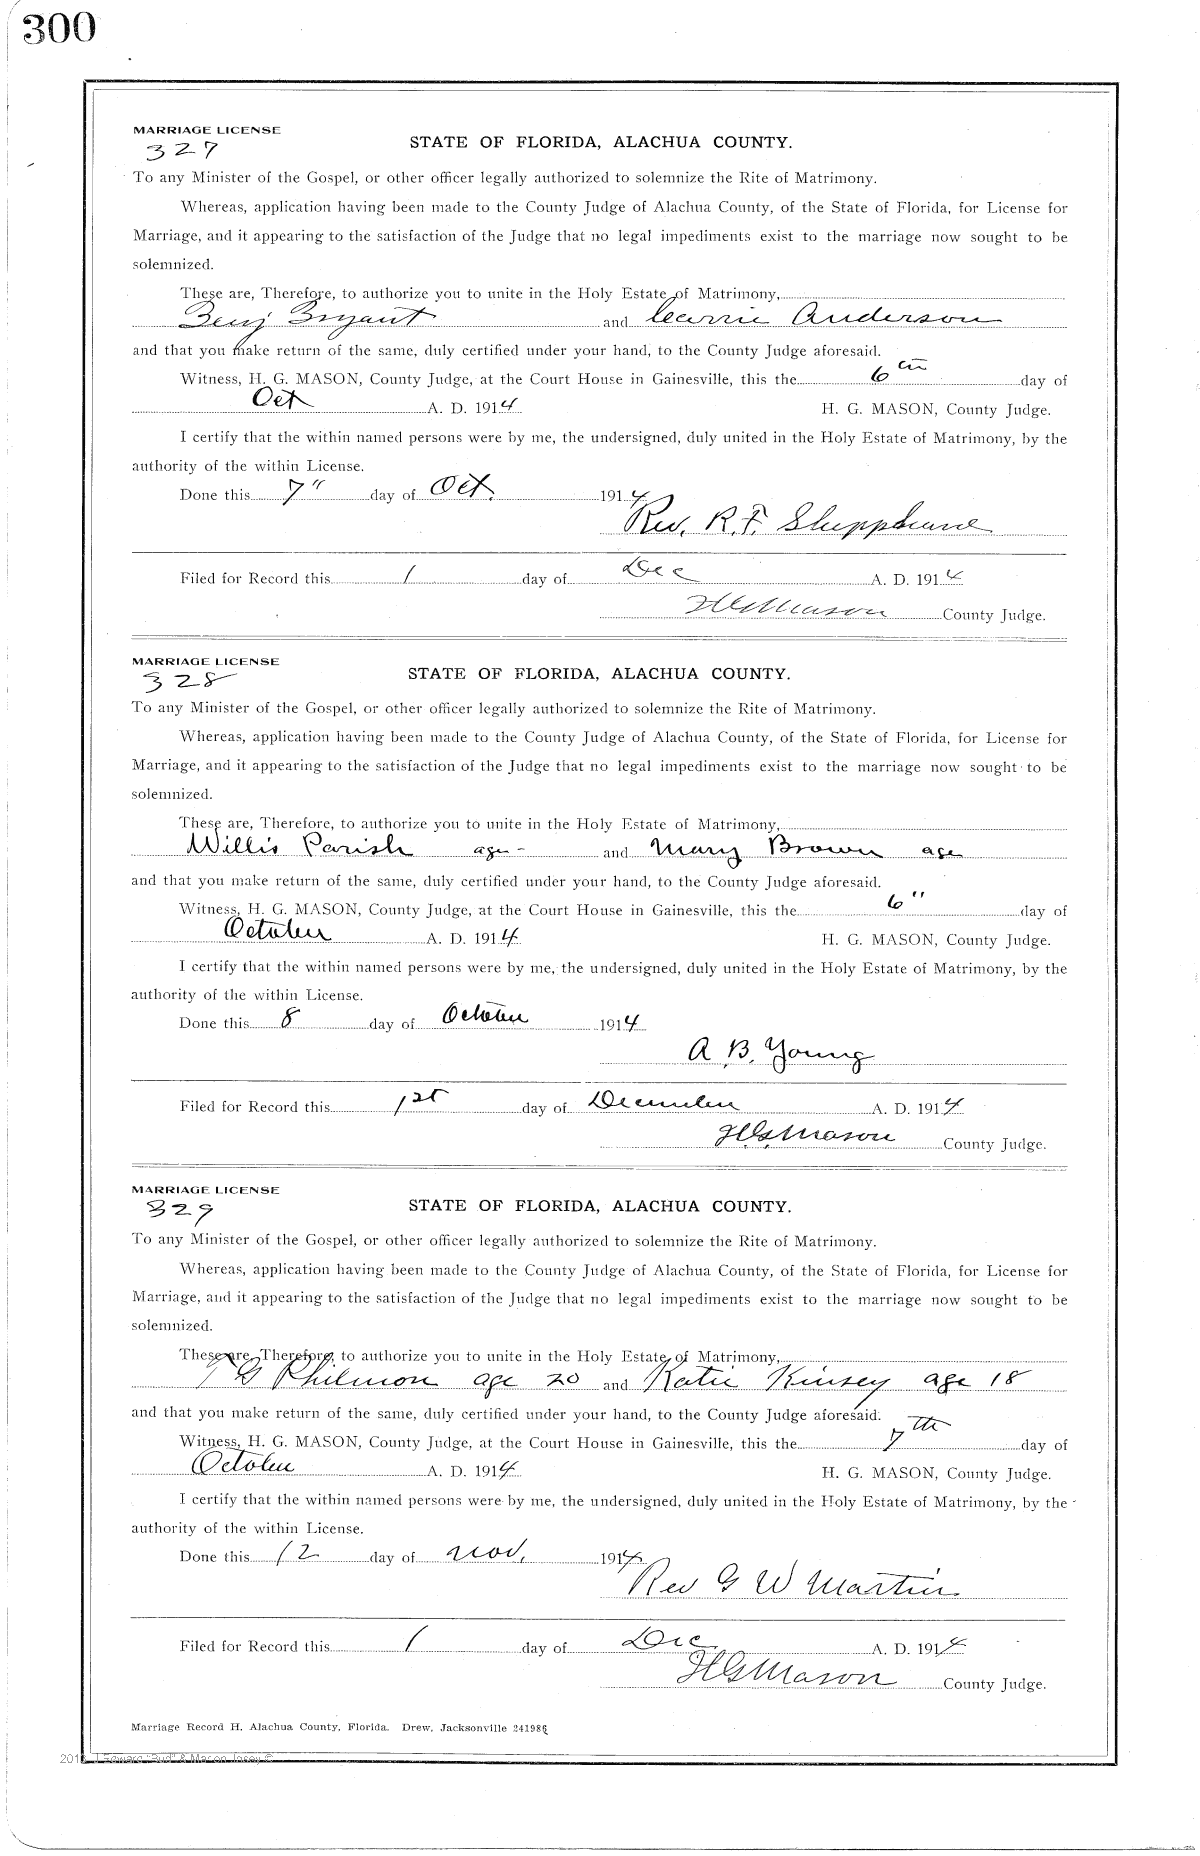 300
MARRIAGE LICENSE
327
STATE OF FLORIDA, ALACHUA COUNTY.
To any Minister of the Gospel, or other officer legally authorized to solemnize the Rite of Matrimony.
Whereas, application having been made to the County Judge of Alachua County, of the State of Florida, for License for
Marriage, and it appearing to the satisfaction of the Judge that no legal impediments exist to the marriage now sought to be
solemnized.
These are, Therefore, to authorize you to unite in the Holy Estate of Matrimony,
Benj Bryant and Carrie Anderson
and that you make return of the same, duly certified under your hand, to the County Judge aforesaid.
Witness, H. G. MASON, County Judge, at the Court House in Gainesville, this the 6th day of
Oct A. D. 1914 H. G. MASON, County Judge.
I certify that the within named persons were by me, the undersigned, duly united in the Holy Estate of Matrimony, by the
authority of the within License.
Done this 7" day of Oct. 1914
Rev. R. F.
Filed for Record this 1 day of Dec A. D. 1914
H G Mason County Judge.
MARRIAGE LICENSE
328
STATE OF FLORIDA, ALACHUA COUNTY.
To any Minister of the Gospel, or other officer legally authorized to solemnize the Rite of Matrimony.
Whereas, application having been made to the County Judge of Alachua County, of the State of Florida, for License for
Marriage, and it appearing to the satisfaction of the Judge that no legal impediments exist to the marriage now sought to be
solemnized.
These are, Therefore, to authorize you to unite in the Holy Estate of Matrimony,
Willis Parish age - and Mary Brown age
and that you make return of the same, duly certified under your hand, to the County Judge aforesaid.
Witness, H. G. MASON, County Judge, at the Court House in Gainesville, this the 6" day of
October A. D. 1914 H. G. MASON, County Judge.
I certify that the within named persons were by me, the undersigned, duly united in the Holy Estate of Matrimony, by the
authority of the within License.
Done this 8 day of October 1914
A. B. Young
Filed for Record this 1st day of December A. D. 1914
H. G. Mason County Judge.
MARRIAGE LICENSE
329
STATE OF FLORIDA, ALACHUA COUNTY.
To any Minister of the Gospel, or other officer legally authorized to solemnize the Rite of Matrimony.
Whereas, application having been made to the County Judge of Alachua County, of the State of Florida, for License for
Marriage, and it appearing to the satisfaction of the Judge that no legal impediments exist to the marriage now sought to be
solemnized.
These are, Therefore, to authorize you to unite in the Holy Estate of Matrimony,
T G Philmon age 20 and Katie Kinsey age 18
and that you make return of the same, duly certified under your hand, to the County Judge aforesaid.
Witness, H. G. MASON, County Judge, at the Court House in Gainesville, this the 7th day of
October A. D. 1914 H. G. MASON, County Judge.
I certify that the within named persons were by me, the undersigned, duly united in the Holy Estate of Matrimony, by the
authority of the within License.
Done this 12 day of Nov, 1914
Rev G W Martin
Filed for Record this 1 day of Dec A. D. 1914
H G Mason County Judge.
Marriage Record H, Alachua County, Florida. Drew, Jacksonville 241986